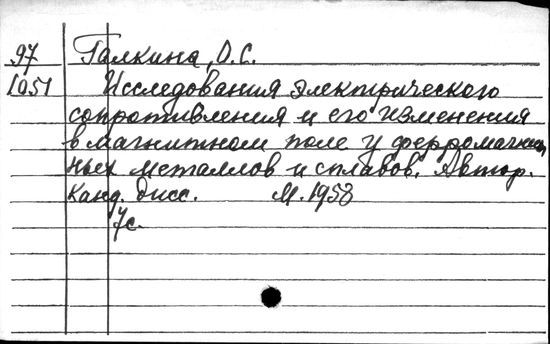 97 Галкина, О.С.
1051 Исследования электрического
сопротивления и его изменения
в магнитном поле у ферромагнит
ных металлов и сплавов. Автор.
канд. дисс. М. 1958
7с.